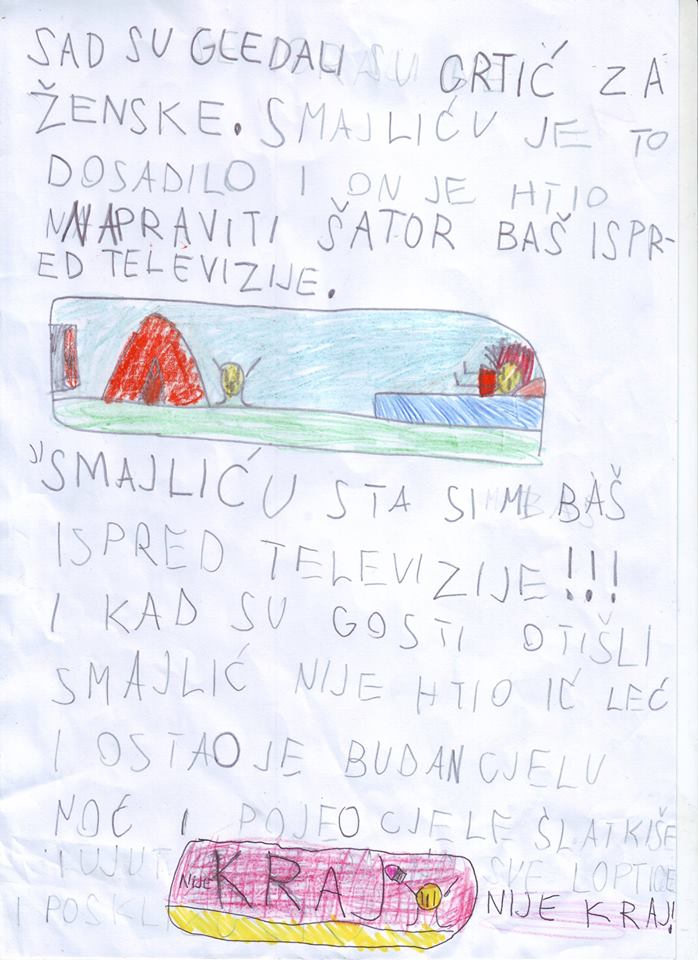 SAD SU GLEDALI CRTIĆ ZA
ŽENSKE. SMAJLIĆU JE TO
DOSADILO I ON JE HTIO
NNAPRAVITI ŠATOR BAŠ ISPR-
ED TELEVIZIJE.
"SMAJLIĆU STA SI MI BAŠ
ISPRED TELEVIZIJE!!!
I KAD SU GOSTI OTIŠLI
SMAJLIĆ NIJE HTIO IĆ LEĆ
I OSTAO JE BUDAN CJELU
NOĆ I POJEO CJELE ŠLATKIŠE
I UJUT SVE LOPTICE
I POSKL
NIJE KRAJ
NIJE KRAJ!